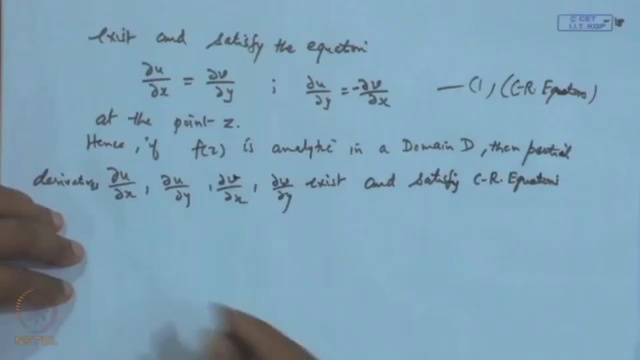 © CET
I.I.T. KGP
exist and satisfy the equation
∂u/∂x = ∂v/∂y ; ∂u/∂y = -∂v/∂x — (1) (C-R. Equations)
at the point z.
Hence, if f(z) is analytic in a Domain D, then partial
derivatives ∂u/∂x, ∂u/∂y, ∂v/∂x, ∂v/∂y exist and satisfy C-R. Equations
NPTEL